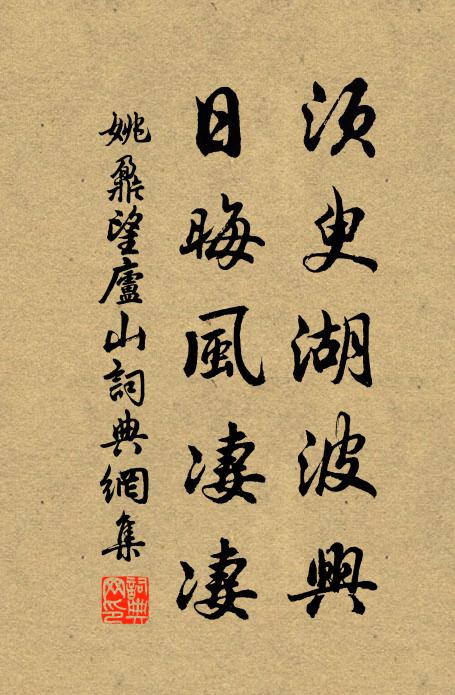 須臾湖波興
日晦風淒淒
姚鼐望廬山詞典網集
詞典网印